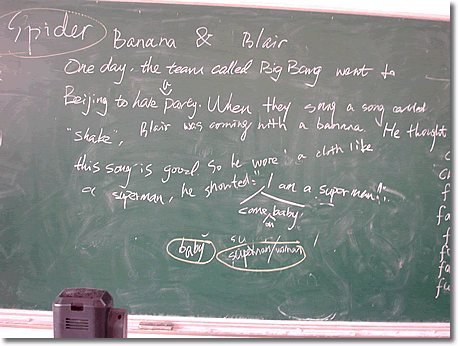 Spider Banana & Blair
One day, the team called Big Bang went to
Beijing to have a party. When they sang a song called
"shake", Blair was coming with a banana. He thought
this song is good so he wore a cloth like
a superman, he shouted: "I am a superman!"
come baby
on
baby su
superman/woman
c
c
f
fa
f
f
fa
fu